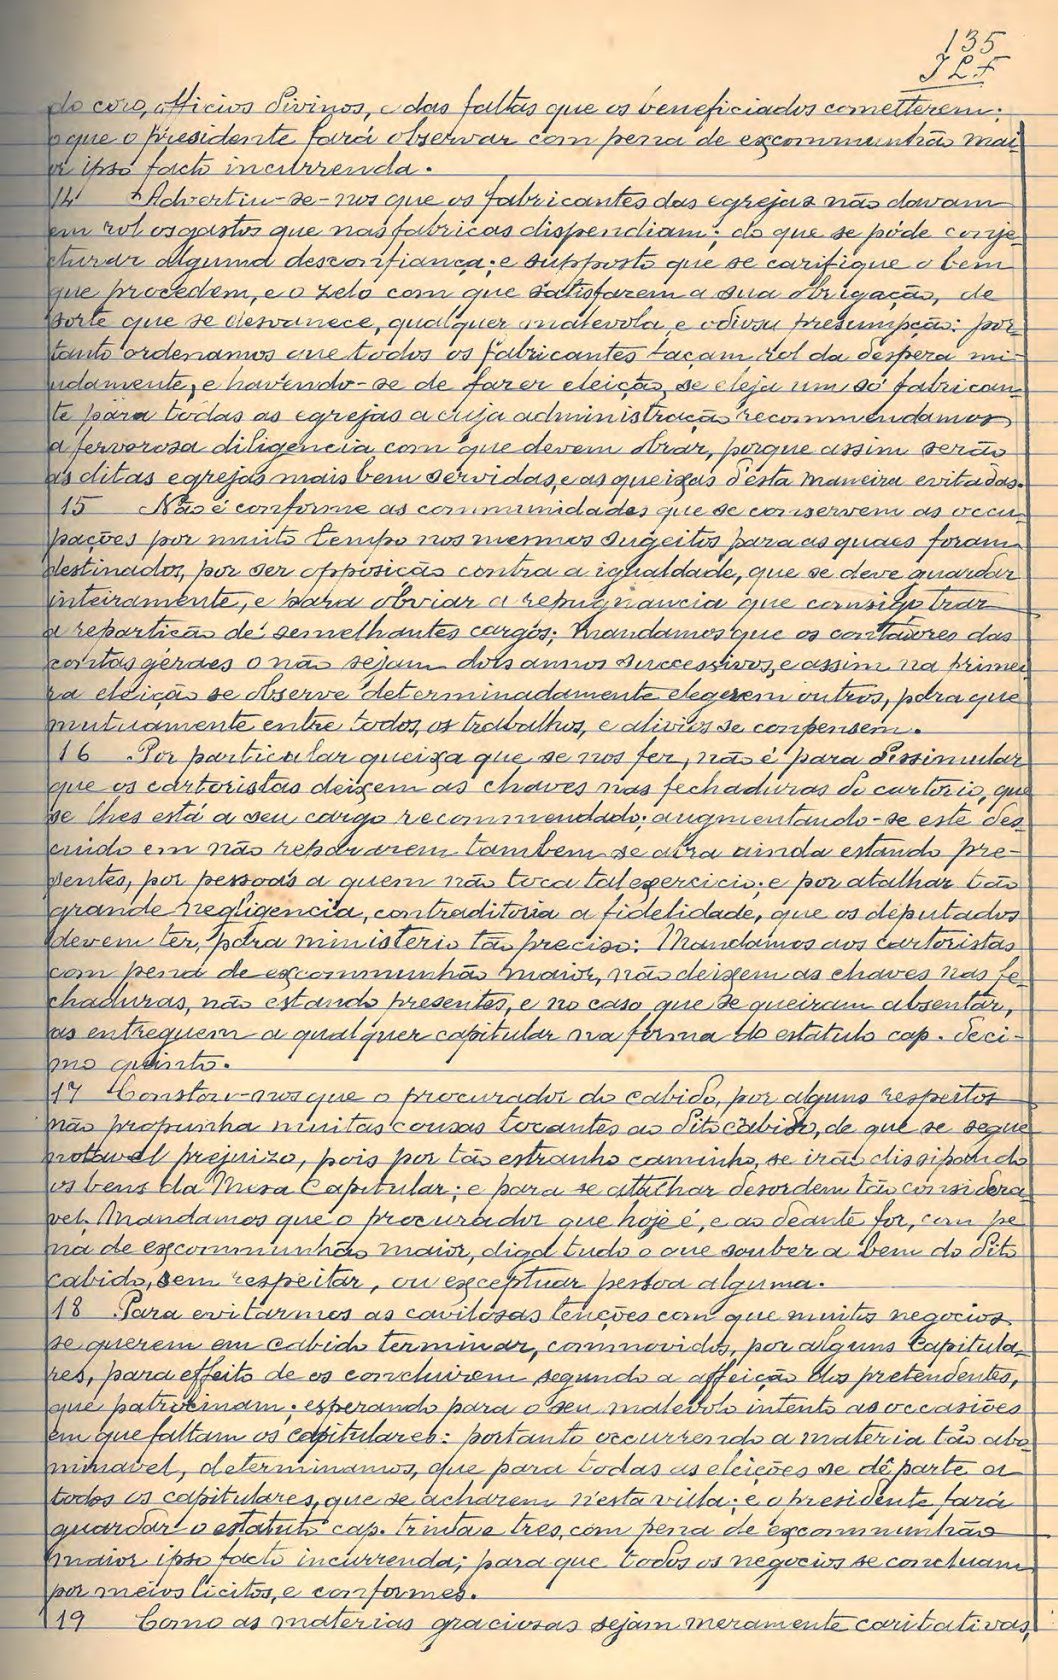 135
J L F
do coro, officios Divinos, e das faltas que os beneficiados cometterem;
o que o presidente fará observar com pena de excommunhão mai-
or ipso facto incurrenda.
14 Advertiu-se-nos que os fabricantes das egrejas não davam
em rol os gastos que nas fabricas dispendiam; do que se póde conje-
cturar alguma desconfiança; e supposto que se carifique o bem
que procedem, e o zelo com que satisfazem a sua obrigação, de
sorte que se desvanece, qualquer malevola, e odiosa presumpção: por-
tanto ordenamos que todos os fabricantes façam rol da despeza mi-
udamente, e havendo-se de fazer eleição, se eleja um só fabrican-
te para todas as egrejas a cuja administração recommendamos
a fervorosa diligencia com que devem obrar, porque assim serão
as ditas egrejas mais bem servidas, e as queixas d'esta maneira evitadas.
15 Não é conforme as communidades que se conservem as occu-
pações por muito tempo nos mesmos sugeitos para as quaes foram
destinados, por ser opposição contra a igualdade, que se deve guardar
inteiramente, e para obviar a repugnancia que comsigo traz
a repartição de semelhantes cargos; Mandamos que os contadores das
contas geraes o não sejam dois annos successivos, e assim na primei-
ra eleição se observe determinadamente elegerem outros, para que
mutuamente entre todos, os trabalhos, e alivios se conpensem.
16 Por particular queixa que se nos fez, não é para dissimular
que os cartoristas deixem as chaves nas fechaduras do cartorio, que
se lhes está a seu cargo recommendado; augmentando-se este des-
cuido em não repararem tambem se abra ainda estando pre-
sentes, por pessoas a quem não toca tal exercicio; e por atalhar tão
grande negligencia, contraditoria a fidelidade, que os deputados
devem ter, para ministerio tão preciso: Mandamos aos cartoristas
com pena de excommunhão maior, não deixem as chaves nas fe-
chaduras, não estando presentes, e no caso que se queiram absentar,
as entreguem a qualquer capitular na forma do estatuto cap. deci-
mo quinto.
17 Constou-nos que o procurador do cabido, por alguns respeitos
não propunha muitas cousas tocantes ao dito cabido, de que se segue
notavel prejuizo, pois por tão estranho caminho, se irão dissipando
os bens da Mesa Capitular; e para se atalhar desordem tão considera-
vel. Mandamos que o procurador que hoje é, e ao deante for, com pe-
na de excommunhão maior, diga tudo o que souber a bem do dito
cabido, sem respeitar, ou exceptuar pessoa alguma.
18 Para evitarmos as cavilosas tenções com que muitos negocios
se querem em cabido terminar, commovidos, por alguns Capitula-
res, para effeito de os concluirem segundo a affeição dos pretendentes,
que patrocinam; esperando para o seu malevolo intento as occasiões
em que faltam os capitulares: portanto occurrendo a materia tão abo-
minavel, determinamos, que para todas as eleições se dê parte a
todos os capitulares, que se acharem n'esta villa; e o presidente fará
guardar o estatuto cap. trinta e tres, com pena de excommunhão
maior ipso facto incurrenda; para que todos os negocios se concluam
por meios licitos, e conformes.
19 Como as materias graciosas sejam meramente caritativas,